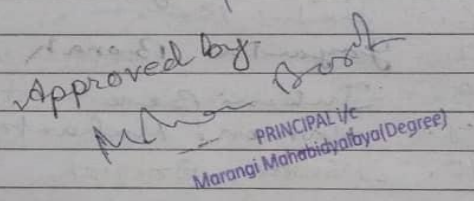 Approved by
PRINCIPAL i/c
Marangi Mahabidyalaya(Degree)